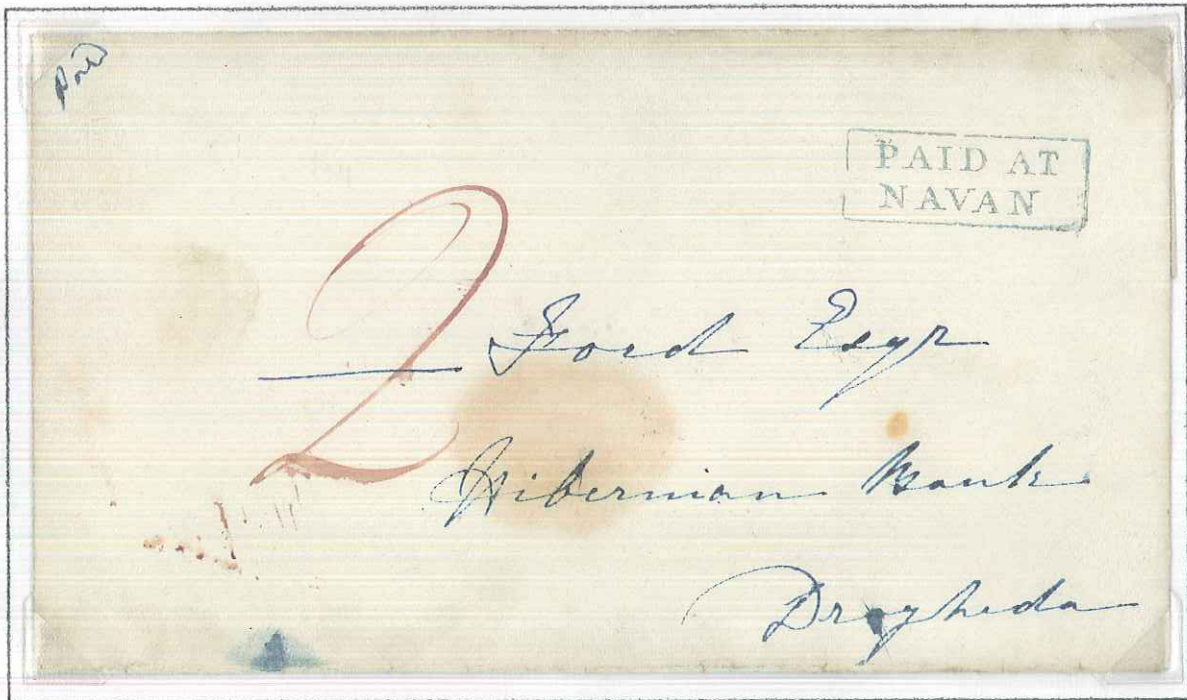 Paid
PAID AT
NAVAN
2
Ford Esqr
Hibernian Bank
Drogheda